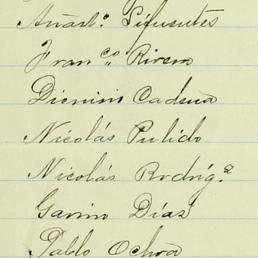 Anast.º Sifuentes
Fran.co Rivera
Dionisio Cadena
Nicolás Pulido
Nicolás Rodríg.z
Gavino Díaz
Pablo Ochoa